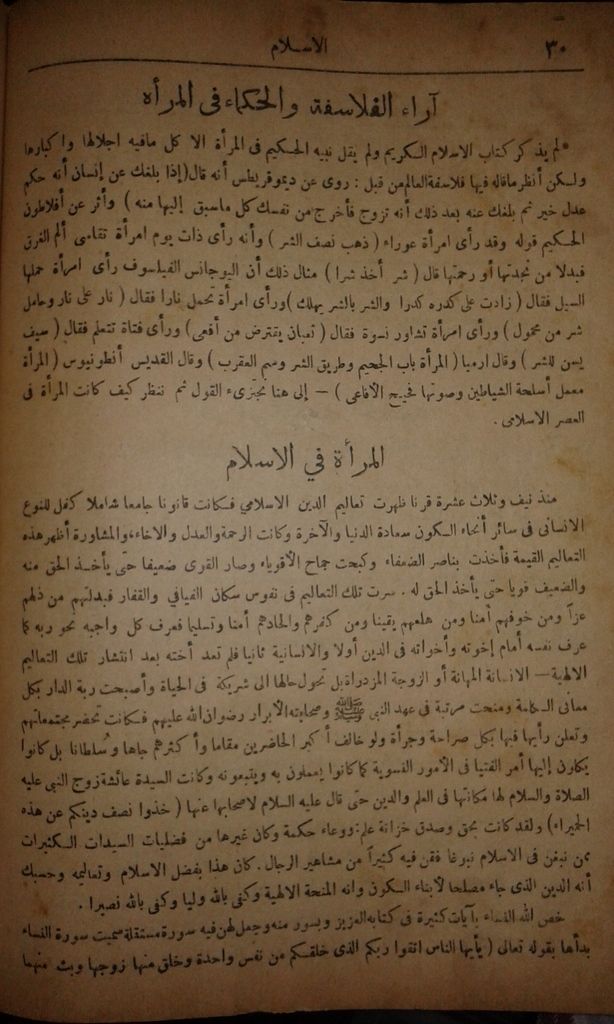 ٣٠
الاسلام
آراء الفلاسفة والحكماء فى المرأة
لم يذكر كتاب الاسلام الكريم ولم يقل نبيه الحكيم فى المرأة الا كل مافيه اجلالها واكبارها
ولكن أنظر ماقاله فيها فلاسفة العالم من قبل : روى عن ديموقريطس أنه قال (إذا بلغك عن إنسان أنه حكم
عدل خير ثم بلغك عنه بعد ذلك أنه تزوج فأخرج من نفسك كل ماسبق إليها منه ) وأثر عن أفلاطون
الحكيم قوله وقد رأى امرأة عوراء ( ذهب نصف الشر ) وأنه رأى ذات يوم امرأة تقاسى ألم الغرق
فبدلا من نجدتها أو رحمتها قال ( شر أخذ شرا ) مثال ذلك أن اليوجانس الفيلسوف رأى امرأة حملها
السيل فقال ( زادت على كدره كدرا والشر بالشر يهلك )ورأى امرأة تحمل نارا فقال ( نار على نار وحامل
شر من محمول ) ورأى امرأة تشاور نسوة فقال ( ثعبان يقترض من أفعى )ورأى فتاة تتعلم فقال ( سيف
يسن للشر ) وقال ارميا ( المرأة باب الجحيم وطريق الشر وسم العقرب ) وقال القديس أنطونيوس ( المرأة
معمل أسلحة الشياطين وصوتها فحيح الأفاعى ) — إلى هنا نجتزىء القول ثم ننظر كيف كانت المرأة فى
العصر الاسلامى .
المرأة في الاسلام
منذ نيف وثلاث عشرة قرنا ظهرت تعاليم الدين الاسلامي فكانت قانونا جامعا شاملا كفل للنوع
الانسانى فى سائر أنحاء الكون سعادة الدنيا والآخرة وكانت الرحمة والعدل والاخاء، والمشاورة أظهر هذه
التعاليم القيمة فأخذت بناصر الضعفاء وكبحت جماح الأقوياء وصار القوى ضعيفا حتى يأخذ الحق منه
والضعيف قويا حتى يأخذ الحق له . سرت تلك التعاليم فى نفوس سكان الفيافي والقفار فبدلتهم من ذلهم
عزاً ومن خوفهم أمنا ومن هلعهم يقينا ومن كفرهم والحادهم أمنا وتسليما فعرف كل واجبه نحو ربه كما
عرف نفسه أمام إخوته وأخواته فى الدين أولا والانسانية ثانيا فلم تعد أخته بعد انتشار تلك التعاليم
الالهية— الانسانة المهانة أو الزوجة المزدراة بل تحول حالها الى شريكة فى الحياة وأصبحت ربة الدار بكل
معانى الكلمة ومنحت مرتبة فى عهد النبى ﷺ وصحابته الأبرار رضوان الله عليهم فكانت تحضر مجتمعاتهم
وتعلن رأيها فيها بكل صراحة وجرأة ولو خالف أكبر الحاضرين مقاما وأكثرهم جاها وسُلطانا بل كانوا
يكلون إليها أمر الفتيا فى الأمور النسوية كما كانوا يعملون به ويتبعونه وكانت السيدة عائشة زوج النبى عليه
الصلاة والسلام لها مكانتها فى العلم والدين حتى قال عليه السلام لاصحابها عنها ( خذوا نصف دينكم عن هذه
الحميراء ) ولقد كانت بحق وصدق خزانة علم: ووعاء حكمة وكان غيرها من فضليات السيدات الكثيرات
ممن نبغن فى الاسلام نبوغا فقن فيه كثيراً من مشاهير الرجال . كان هذا بفضل الاسلام وتعاليمه وحسبك
أنه الدين الذى جاء مصلحا لأبناء الكون وانه المنحة الالهية وكفى بالله وليا وكفى بالله نصيرا .
خص الله النساء بآيات كثيرة فى كتابه العزيز وبسور منه وجعل لهن فيه سورة مستقلة سميت سورة النساء
بدأها بقوله تعالى ( يأيها الناس اتقوا ربكم الذى خلقكم من نفس واحدة وخلق منها زوجها وبث منهما